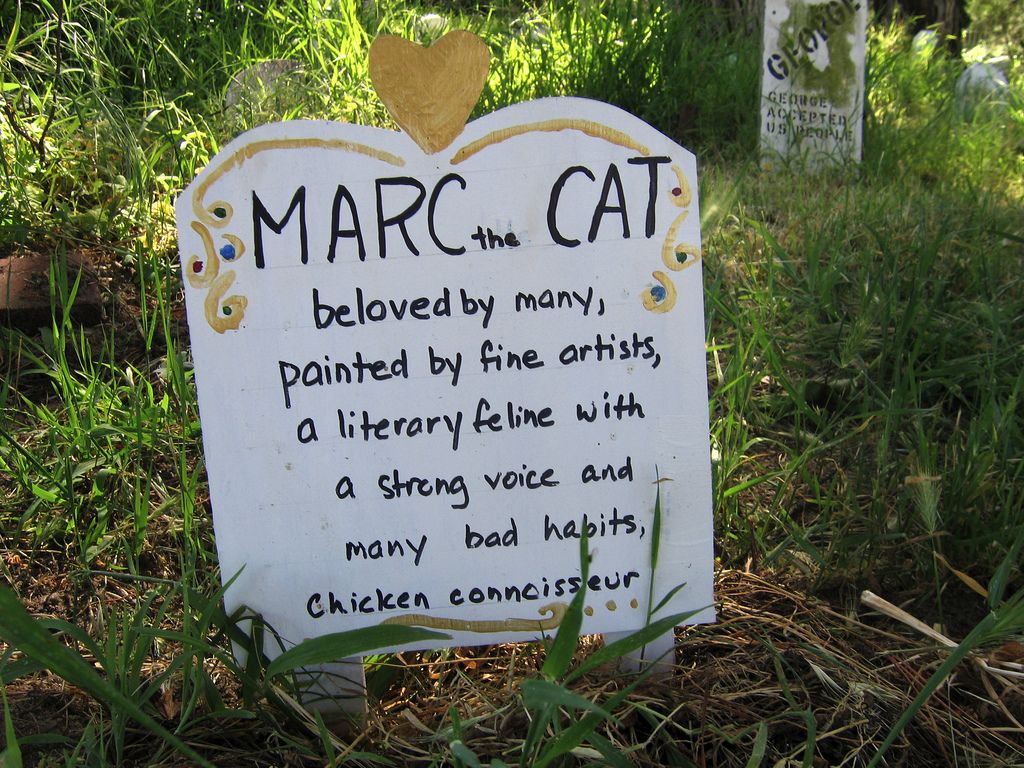 MARC the CAT
beloved by many,
painted by fine artists,
a literary feline with
a strong voice and
many bad habits,
Chicken connoisseur
GEORGE
GEORGE
ACCEPTED
US PEOPLE